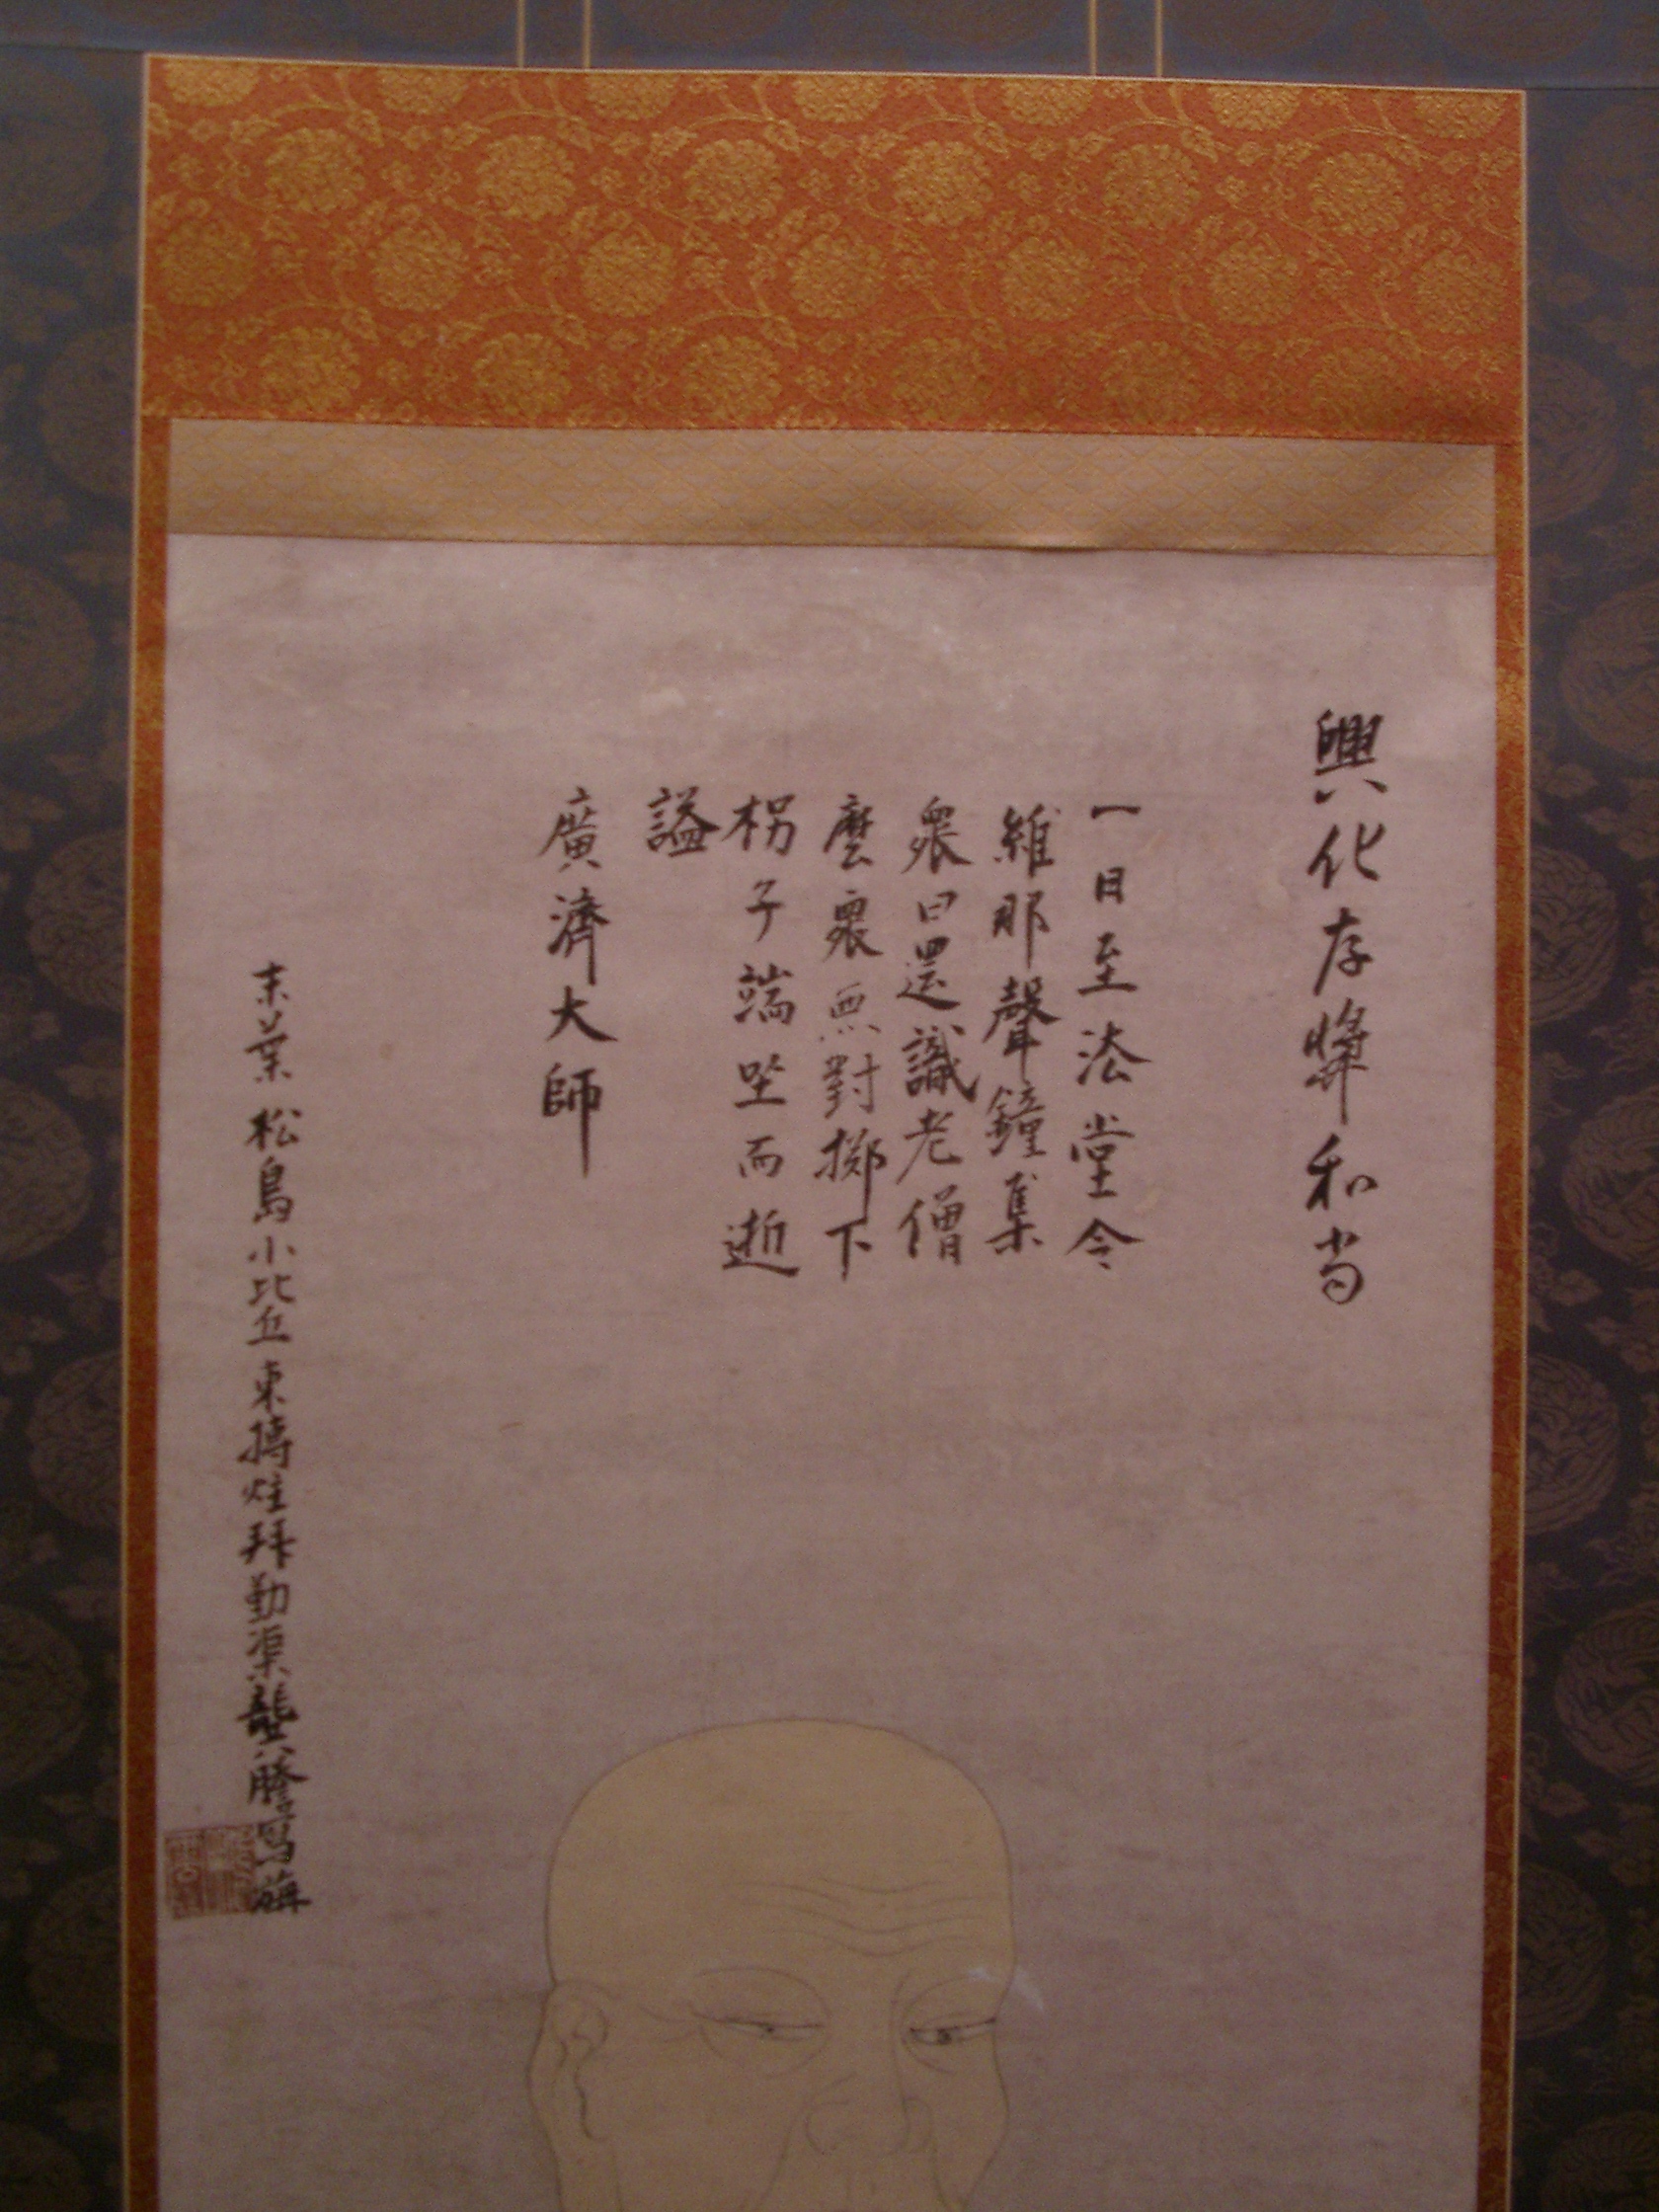 興化存奨和尚
一日至法堂令
維那聲鐘集
衆曰還識老僧
麼衆無對擲下
枴子端坐而逝
謚
廣濟大師
末葉松島小比丘東搏炷拜勤渠龔謄寫